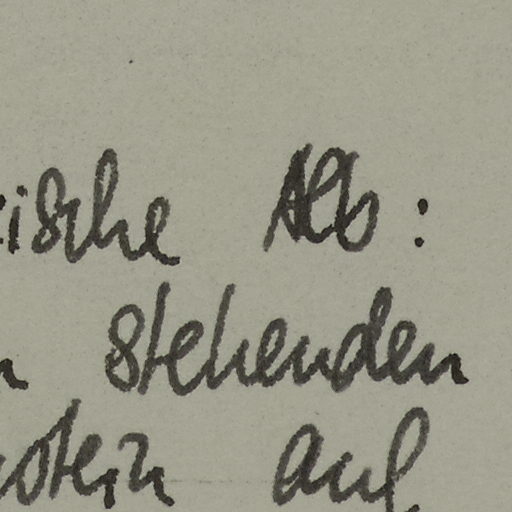 ische Alb:
n stehenden
stein auf